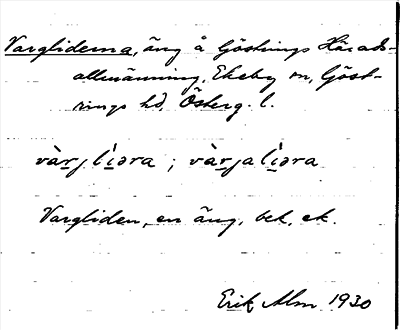 Vargliderna, äng å Göstrings Härads-
allmänning, Ekeby sn, Göst-
rings hd, Österg. l.
vàrjlìəra ; vàrjalìəra
Vargliden, en äng, bek. ek.
Erik Alm 1930